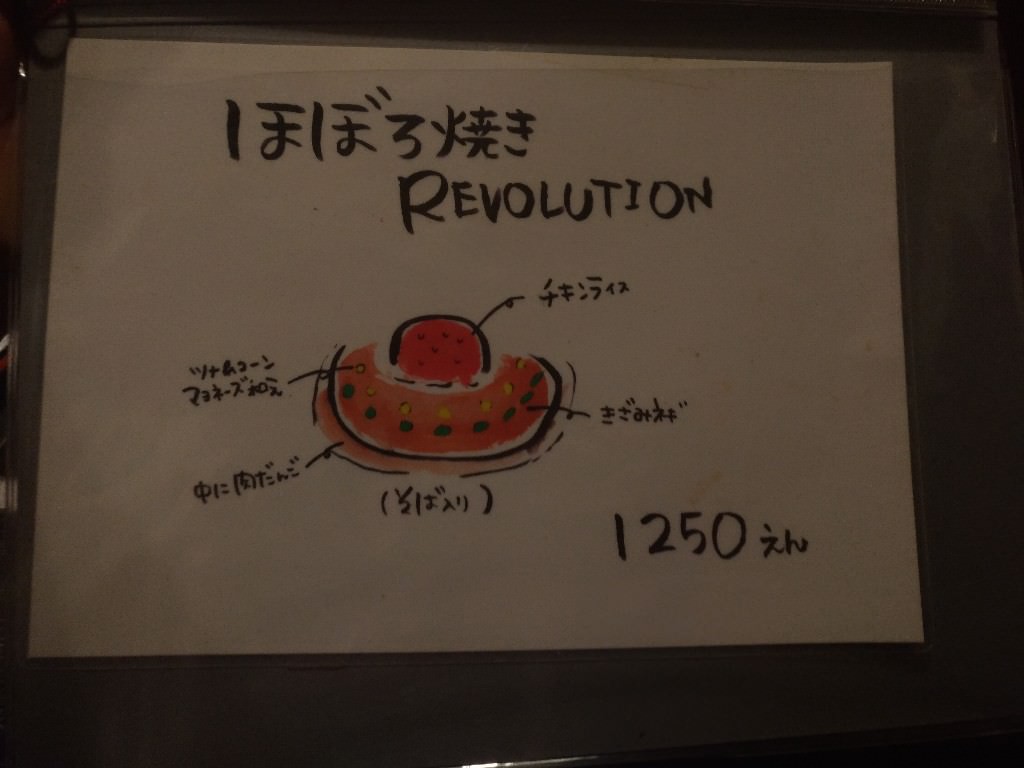 ほぼろ焼き
REVOLUTION
チキンライス
ツナ&コーン
マヨネーズ和え
きざみネギ
中に肉だんご
(そば入り)
1250えん